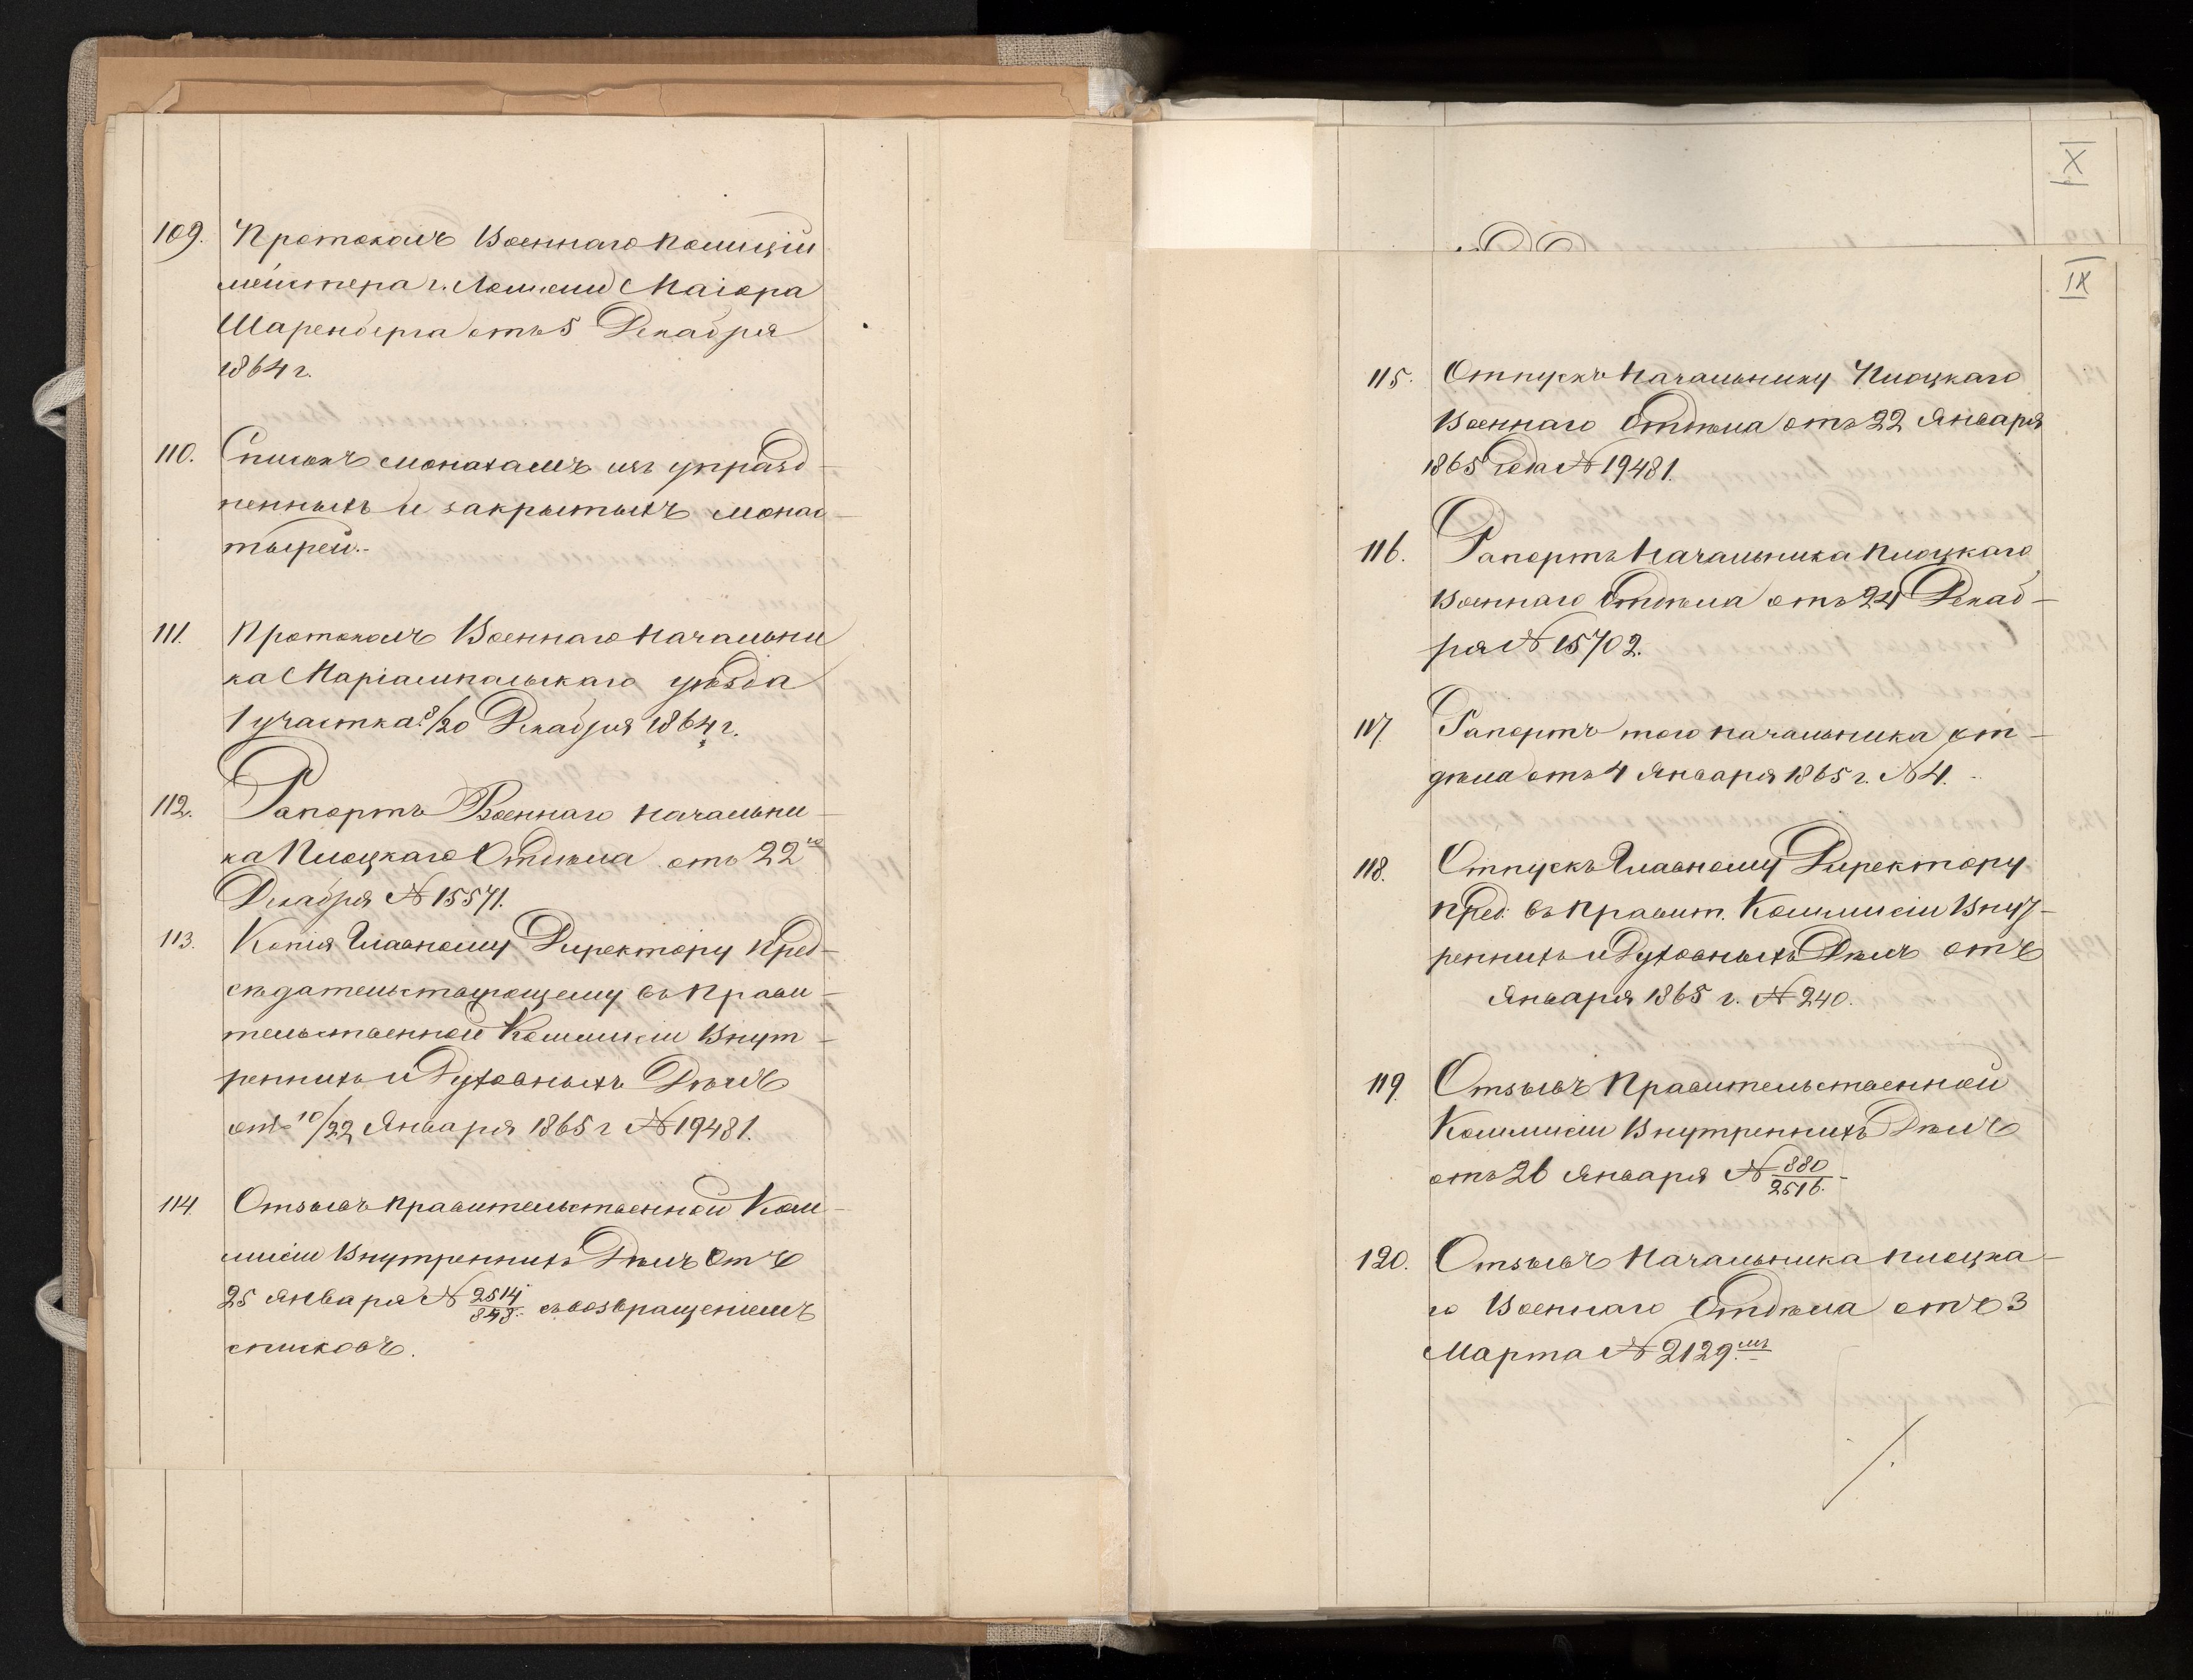 109. Протоколъ Военнаго полиціи
мейстера г. Ломжи Маіора
Шаренберга отъ 5 Декабря
1864 г.
110. Списокъ монахамъ изъ упразд-
ненныхъ и закрытыхъ монас-
тырей.-
111. Протоколъ Военнаго Начальни
ка Маріампольскаго уѣзда
1 участка 8/20 Декабря 1864 г.
112. Рапортъ Военнаго Начальни-
ка Плоцкаго Отдѣла отъ 22го
Декабря № 15571.
113. Копія Главному Директору Пред-
сѣдательствующему въ Прави-
тельственной Коммисіи Внут-
реннихъ и Духовныхъ Дѣлъ
отъ 10/22 Января 1865 г № 19481.
114. Отзывъ Правительственной Ком-
мисіи Внутреннихъ Дѣлъ отъ
25 Января № 2514/848. съ возвращеніемъ
списковъ.
X
IX
115. Отпускъ Начальнику Плоцкаго
Военнаго Отдѣла отъ 22 Января
1865 года № 19481.
116. Рапортъ Начальника Плоцкаго
Военнаго Отдѣла отъ 24 Декаб-
ря № 15702.
117. Рапортъ того Начальника от-
дѣла отъ 4 Января 1865 г. № 4.
118. Отпускъ Главному Директору
Пред. въ Правит. Коммисіи Внут-
реннихъ и Духовныхъ Дѣлъ отъ
Января 1865 г. № 240.
119. Отзывъ Правительственной
Коммисіи Внутреннихъ Дѣлъ
отъ 26 Января № 880/2516.-
120. Отзывъ Начальника Плоцка-
го Военнаго Отдѣла отъ 3
Марта № 2129.мъ